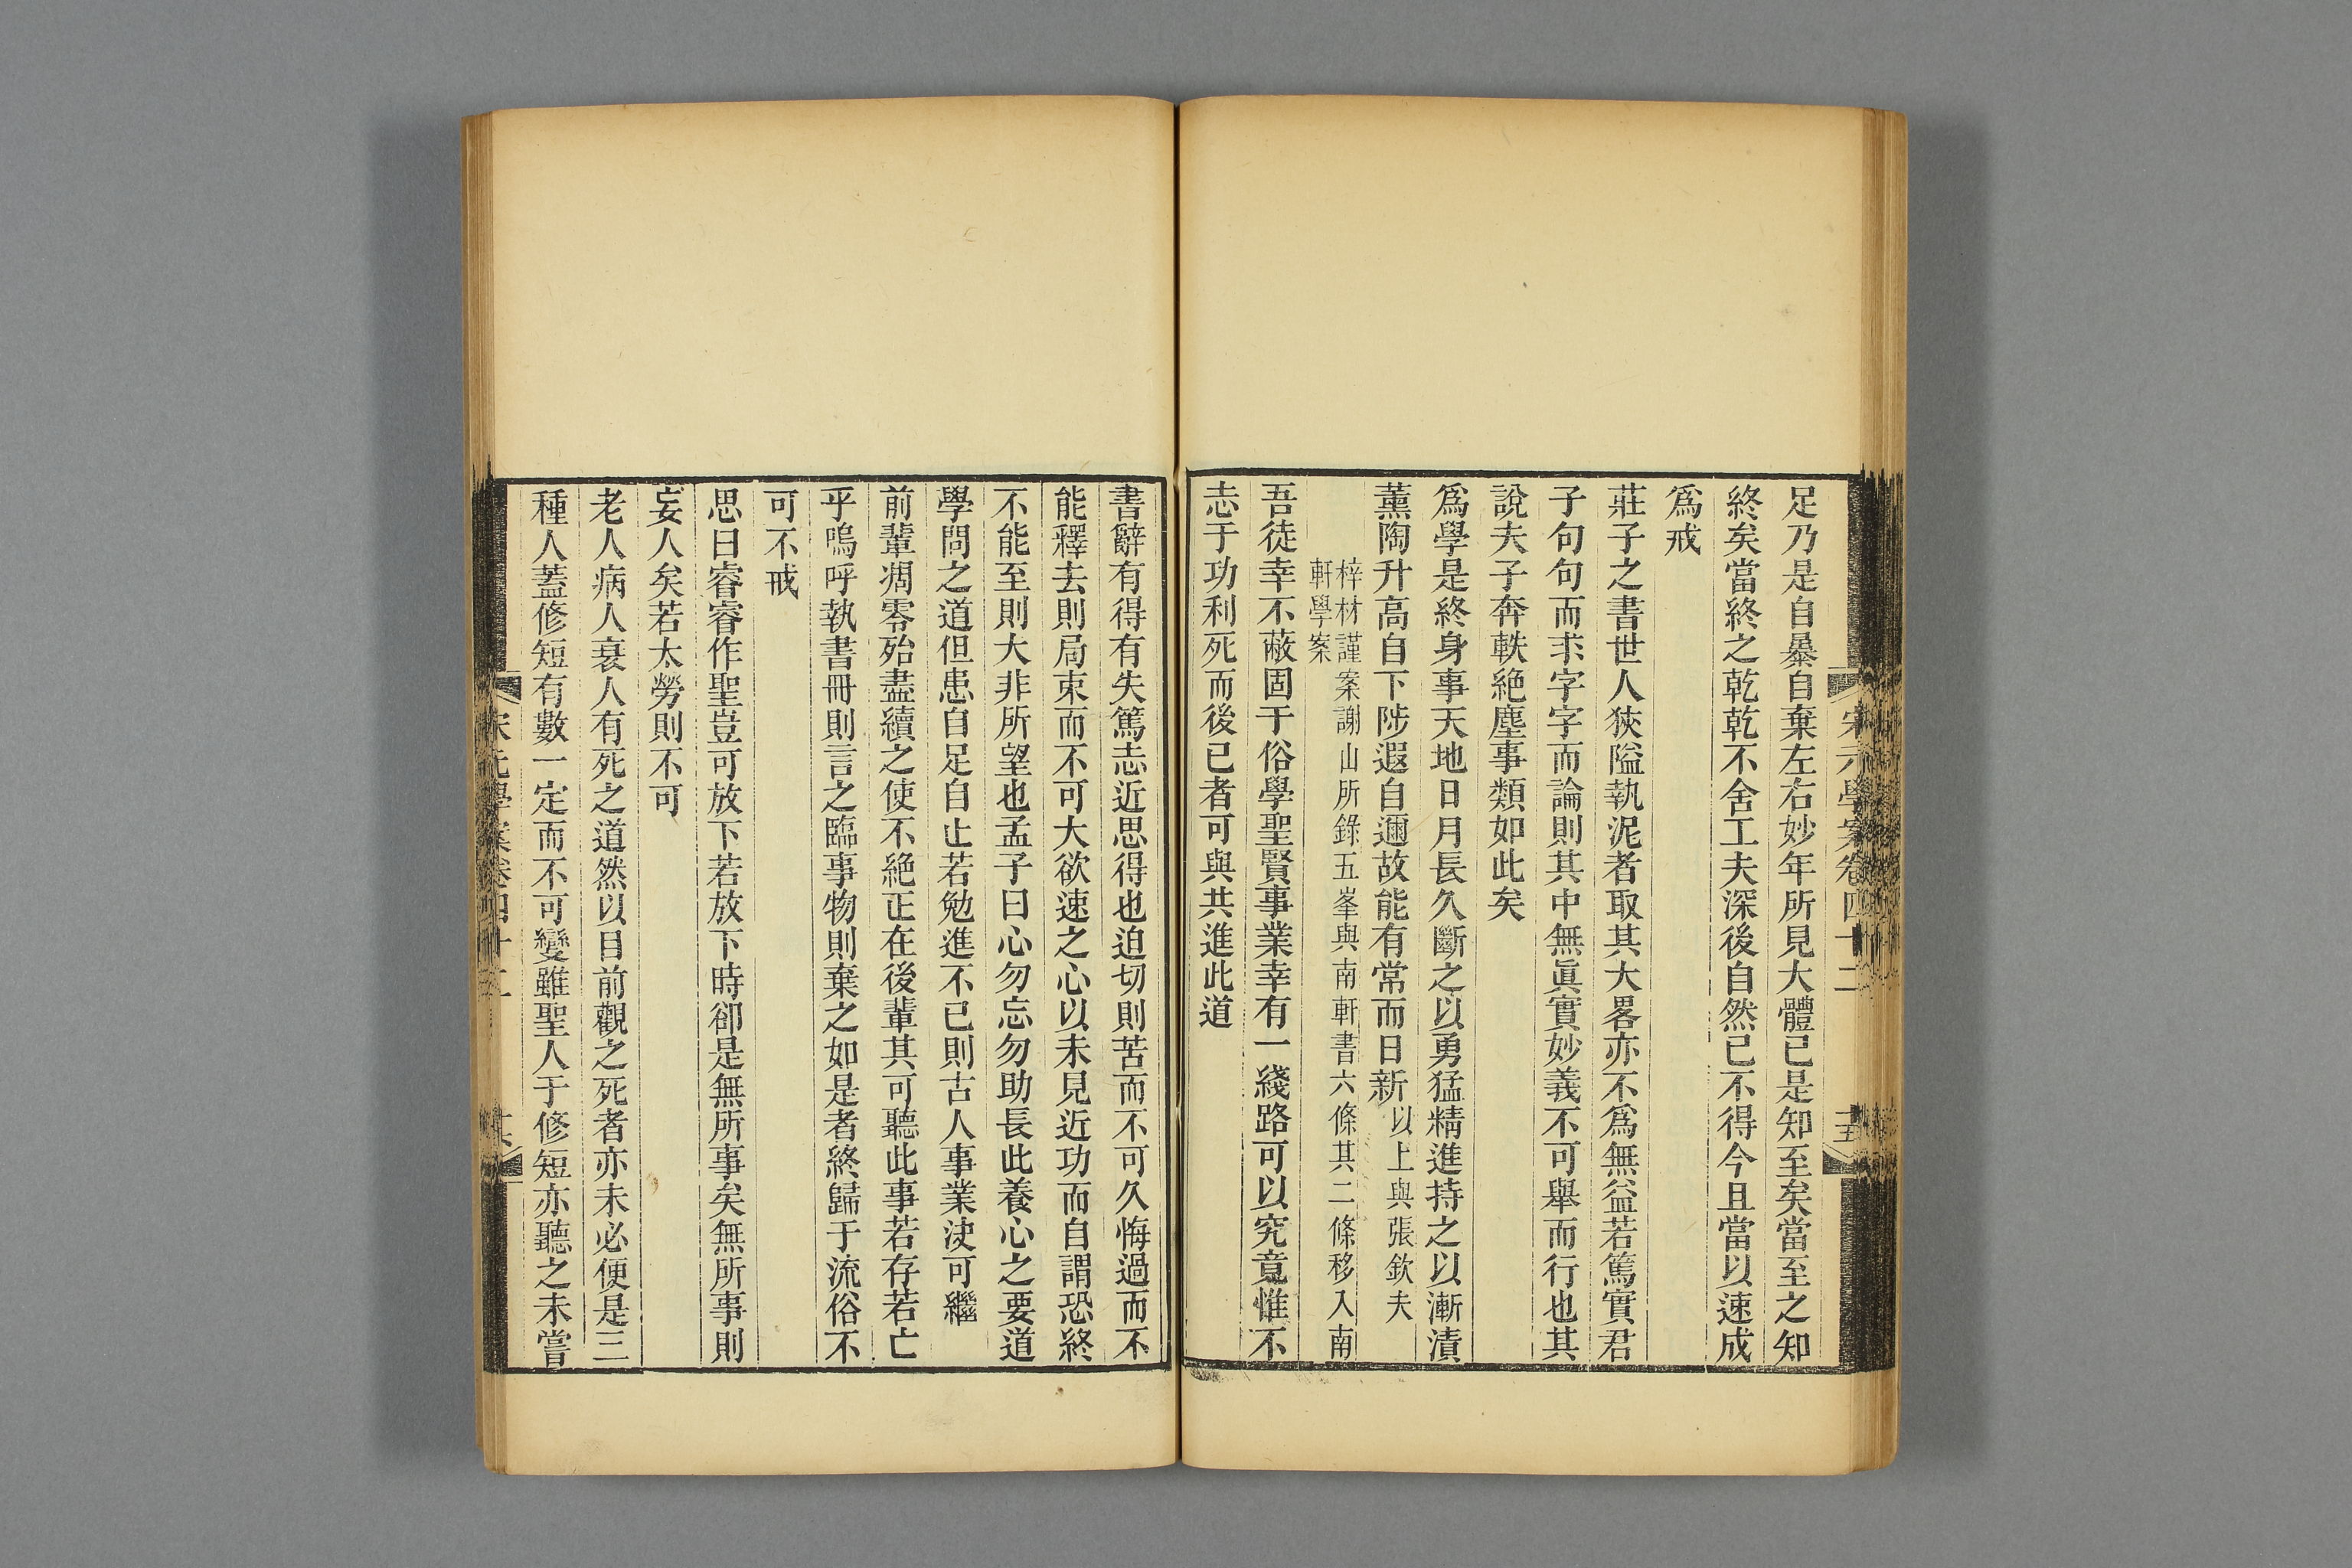 宋元學案卷四十二
十五
足乃是自暴自棄左右妙年所見大體已是知至矣當至之知
終矣當終之乾乾不舍工夫深後自然已不得今且當以速成
爲戒
莊子之書世人狹隘執泥者取其大畧亦不爲無益若篤實君
子句句而求字字而論則其中無眞實妙義不可舉而行也其
說夫子奔軼絕塵事類如此矣
爲學是終身事天地日月長久斷之以勇猛精進持之以漸漬
薰陶升高自下陟遐自邇故能有常而日新以上與張欽夫
梓材謹案謝山所錄五峯與南軒書六條其二條移入南
軒學案
吾徒幸不蔽固于俗學聖賢事業幸有一綫路可以究竟惟不
志于功利死而後已者可與共進此道
書辭有得有失篤志近思得也迫切則苦而不可久悔過而不
能釋去則局束而不可大欲速之心以未見近功而自謂恐終
不能至則大非所望也孟子曰心勿忘勿助長此養心之要道
學問之道但患自足自止若勉進不已則古人事業決可繼
前輩凋零殆盡續之使不絕正在後輩其可聽此事若存若亡
乎嗚呼執書冊則言之臨事物則棄之如是者終歸于流俗不
可不戒
思曰睿睿作聖豈可放下若放下時卻是無所事矣無所事則
妄人矣若太勞則不可
老人病人衰人有死之道然以目前觀之死者亦未必便是三
種人蓋修短有數一定而不可變雖聖人于修短亦聽之未嘗
宋元學案卷四十二
十六